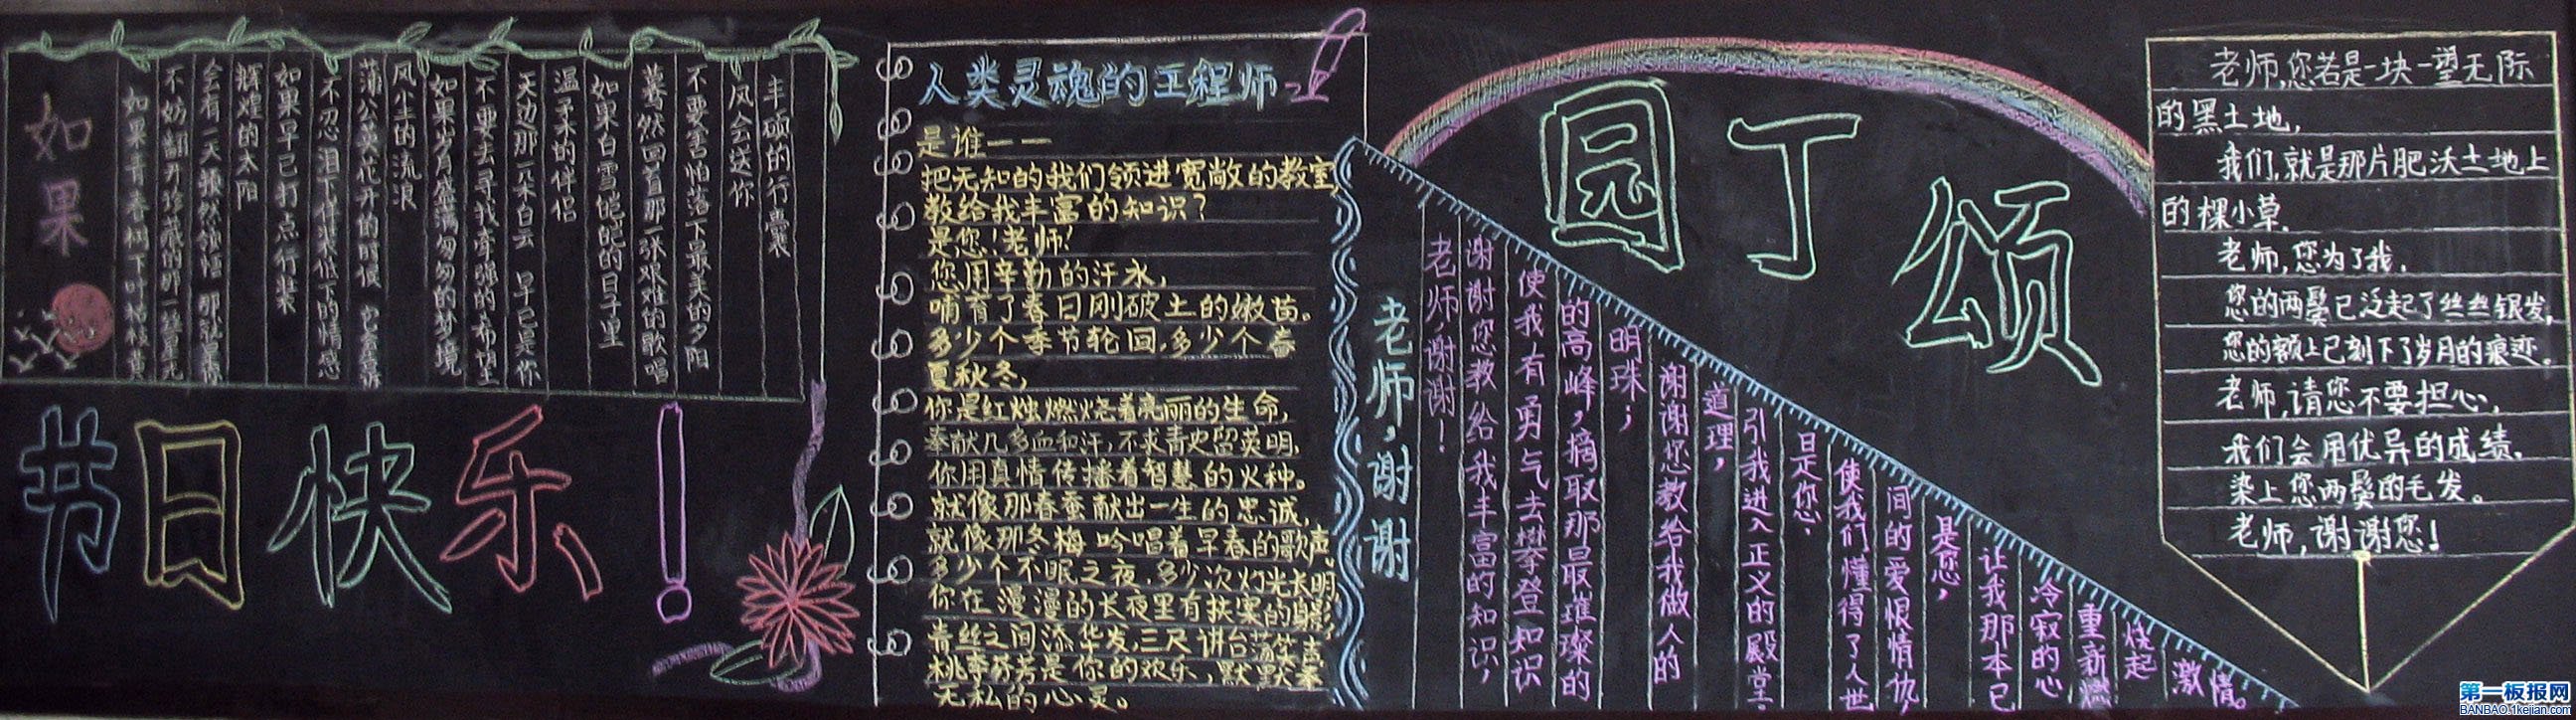 如果
如果青春树下叶枯枝黄
不妨翻开珍藏的那一
会有一天 顿然领悟 那就是你
辉煌的太阳
如果早已打点行装
不忍泪下低下的情感
蒲公英花开的时候
风尘的流浪
如果岁月盛满匆匆的梦境
不要去寻找牵强的希望
天边那一朵白云 早已是你
温柔的伴侣
如果白雪皑皑的日子里
蓦然回首那一张艰难的歌唱
不要害怕落下最美的夕阳
风会送你
丰硕的行囊
节日快乐!
人类灵魂的工程师
是谁——
把无知的我们领进宽敞的教室,
教给我丰富的知识?
是您!老师!
您用辛勤的汗水,
哺育了春日刚破土的嫩苗。
多少个季节轮回,多少个春
夏秋冬,
你是红烛燃烧着亮丽的生命,
奉献几多血和汗,不求青史留英明,
你用真情传播着智慧的火种。
就像那春蚕献出一生的忠诚,
就像那冬梅吟唱着早春的歌声。
多少个不眠之夜,多少次灯光长明,
你在漫漫的长夜里有挟案的身影,
青丝之间添华发,三尺讲台荡笑声,
桃李芬芳是你的欢乐,默默奉
无私的心灵。
园丁颂
老师,谢谢
老师,谢谢!
谢谢您教给我丰富的知识,
使我有勇气去攀登知识
的高峰,摘取那最璀璨的
明珠;
谢谢您教给我做人的
道理,
引我进入正义的殿堂;
是您,
使我们懂得了人世
间的爱恨情仇,
是您,
让我那本已
冷寂的心
重新燃
烧起
激情。
老师,您若是一块一望无际
的黑土地,
我们,就是那片肥沃土地上
的棵小草.
老师,您为了我,
您的两鬓已泛起了丝丝银发,
您的额上已刻下了岁月的痕迹。
老师,请您不要担心,
我们会用优异的成绩,
染上您两鬓的毛发。
老师,谢谢您!
第一板报网
BANBAO.1kejian.com